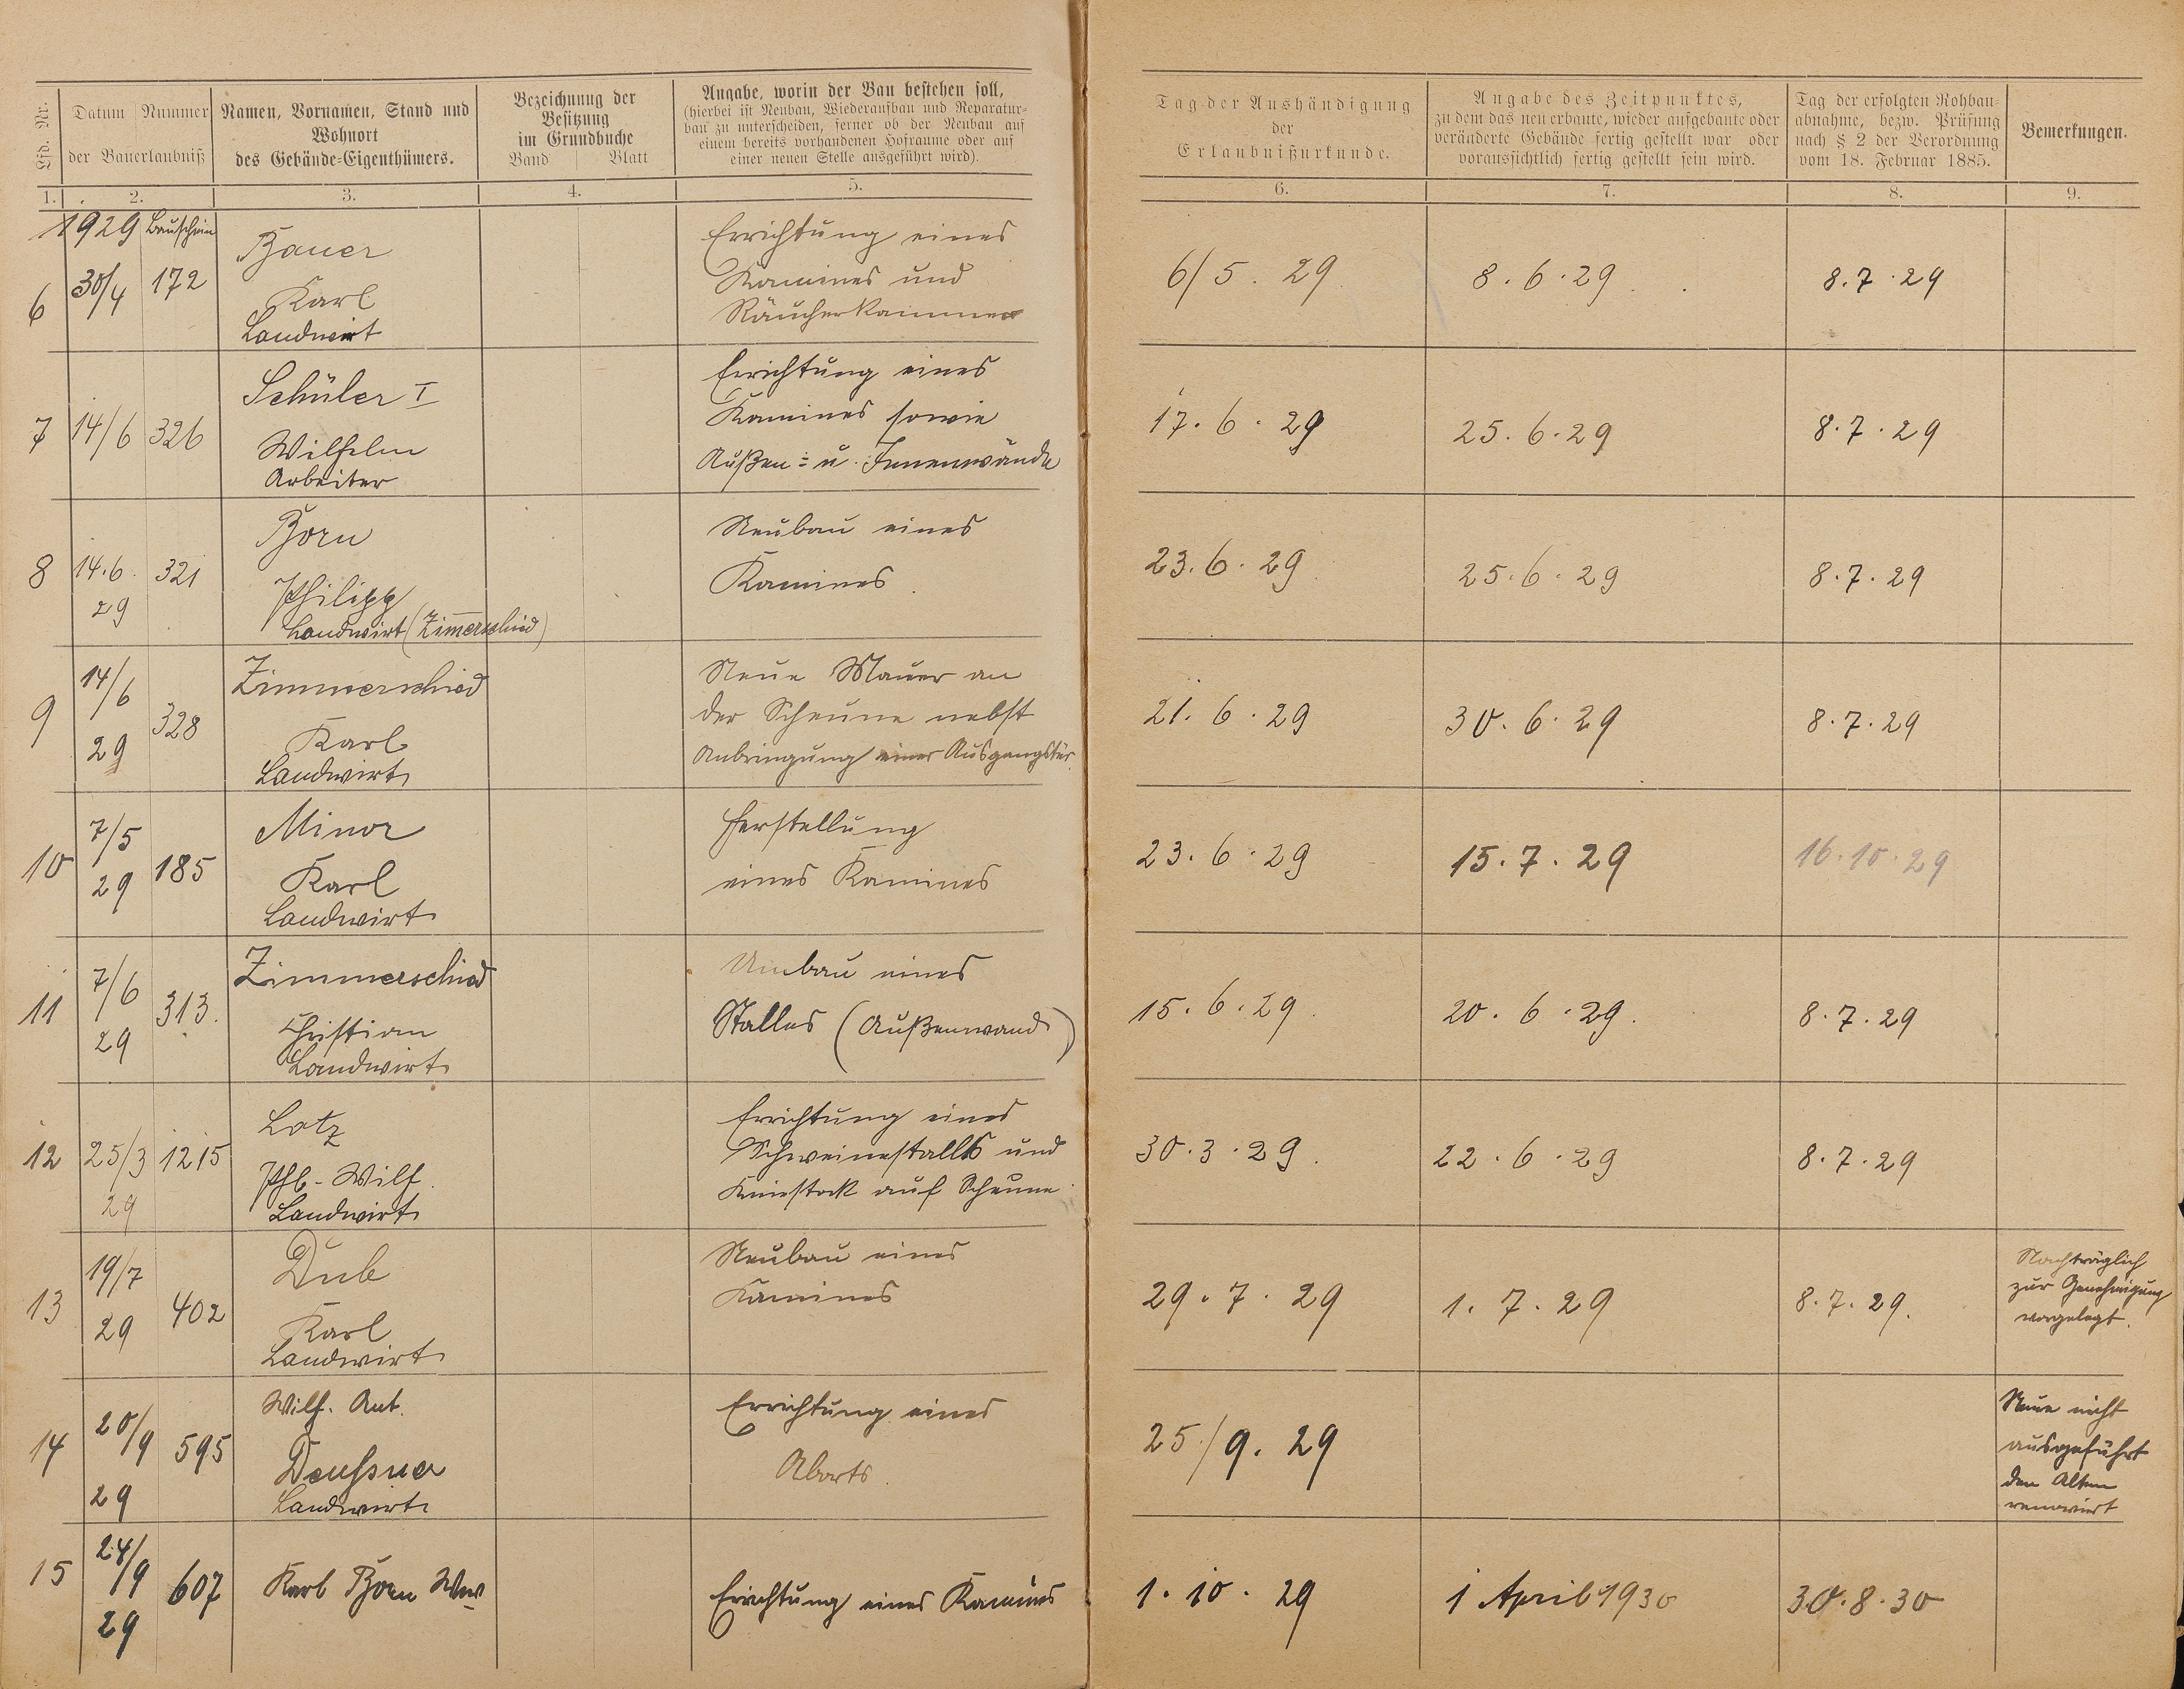 Lfd. Nr.
Datum Nummer
der Bauerlaubniß
Namen, Vornamen, Stand und
Wohnort
des Gebäude-Eigenthümers.
Bezeichnung der
Besitzung
im Grundbuche
Band Blatt
Angabe, worin der Bau bestehen soll,
(hierbei ist Neubau, Wiederaufbau und Reparatur-
bau zu unterscheiden, ferner ob der Neubau auf
einem bereits vorhandenen Hofraume oder auf
einer neuen Stelle ausgeführt wird).
Tag der Aushändigung
der
Erlaubnißurkunde.
Angabe des Zeitpunktes,
zu dem das neu erbaute, wieder aufgebaute oder
veränderte Gebäude fertig gestellt war oder
voraussichtlich fertig gestellt sein wird.
Tag der erfolgten Rohbau-
abnahme, bezw. Prüfung
nach § 2 der Verordnung
vom 18. Februar 1885.
Bemerkungen.
1. 2. 3. 4. 5. 6. 7. 8. 9.
1929 Bauschein
6 30/4 172
Bauer
Karl
Landwirt
Errichtung eines
Kamines und
Räucherkammer
6/5. 29 8.6.29 8.7.29
7 14/6 326
Schüler I
Wilhelm
Arbeiter
Errichtung eines
Kamines sowie
Außen- u. Innenwände
17.6.29 25.6.29 8.7.29
8 14.6. 321
29
Born
Philipp
Landwirt (Zim̅erschied)
Neubau eines
Kamines.
23.6.29 25.6.29 8.7.29
9 14/6 328
29
Zimmerschied
Karl
Landwirt
Neue Mauer an
der Scheune nebst
Anbringung einer Ausgangstür.
21.6.29 30.6.29 8.7.29
10 7/5 185
29
Minor
Karl
Landwirt
Herstellung
eines Kamines
23.6.29 15.7.29 16.10.29
11 7/6 313.
29
Zimmerschied
Christian
Landwirt
Umbau eines
Stalles (Außenwand)
15.6.29. 20.6.29. 8.7.29
12 25/3 1215
29
Lotz
Phl.-Wilh.
Landwirt
Errichtung eines
Schweinestalls und
Kniestock auf Scheune.
30.3.29. 22.6.29 8.7.29
13 19/7 402
29
Dub
Karl
Landwirt
Neubau eines
Kamines
29.7.29 1.7.29 8.7.29.
Nachträglich
zur Genehmigung
vorgelegt.
14 20/9 595
29
Wilh. Ant.
Deußner
Landwirt
Errichtung eines
Aborts.
25/9.29
Neue nicht
ausgeführt
den Alten
renoviert
15 24/9 607
29
Karl Born Ww
Errichtung eines Kamines
1.10.29 1 April 1930 30.8.30